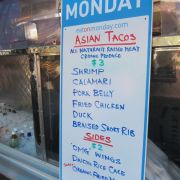 MONDAY
miltonmonday.com
ASIAN TACOS
ALL NATURALLY RAISED MEAT
ORGANIC PRODUCE
$3
SHRIMP
CALAMARI
PORK BELLY
FRIED CHICKEN
DUCK
BRAISED SHORT RIB
SIDES
$2
OMG WINGS
DAIKON RICE CAKE